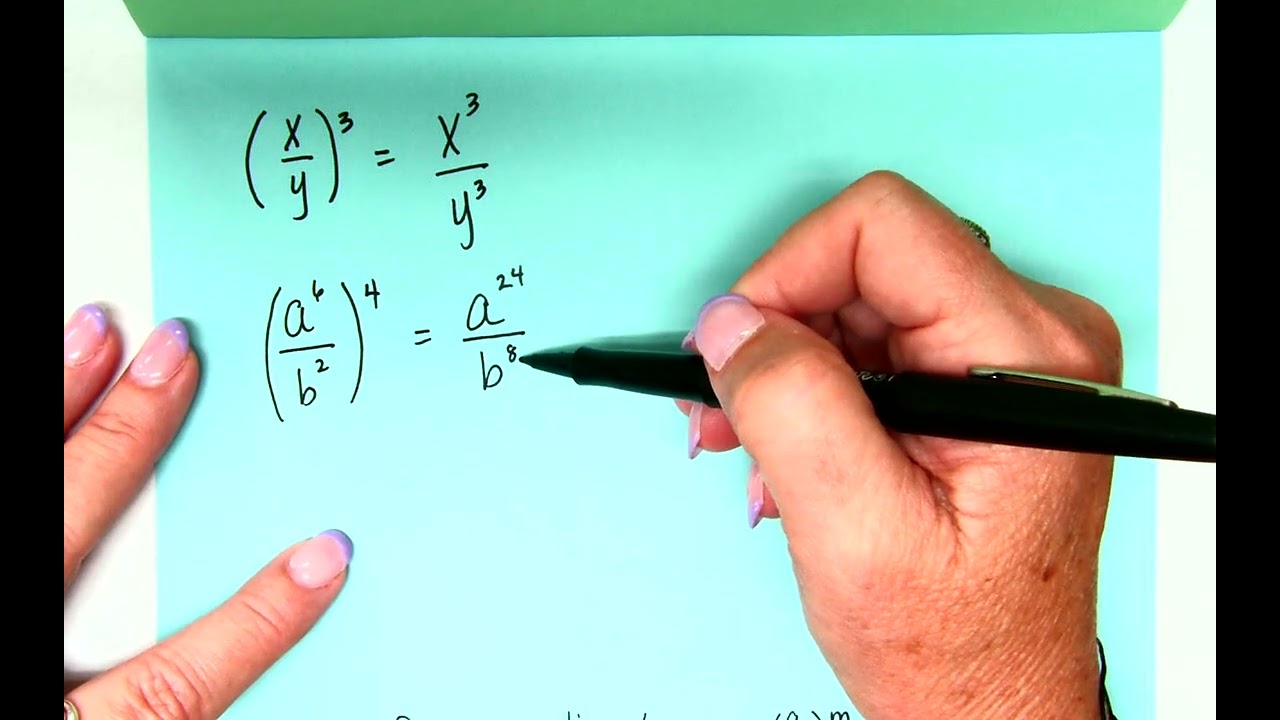 (x/y)³ = x³/y³
(a⁶/b²)⁴ = a²⁴/b⁸